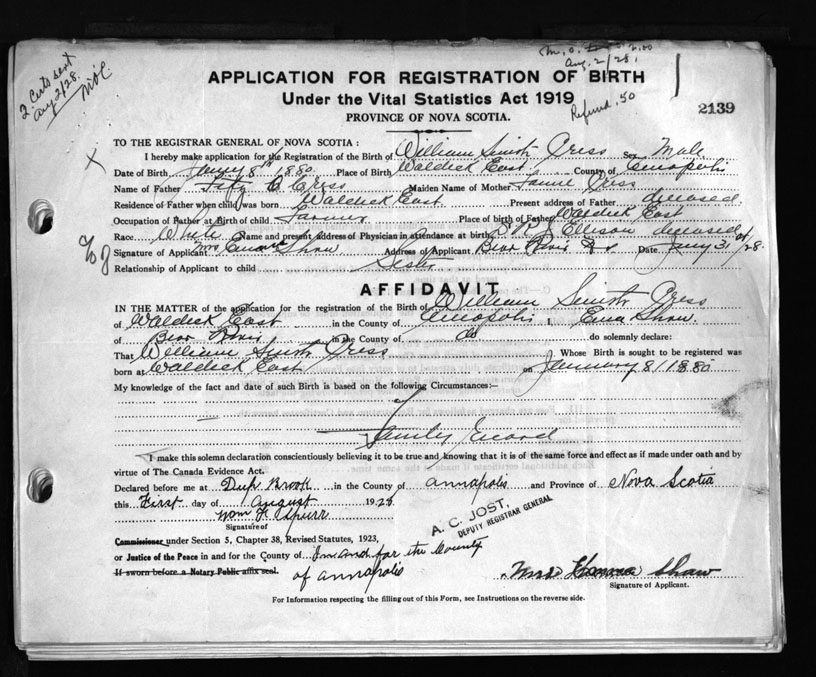 2 Certs sent
Aug 2/28.
M.O. 2.00
Aug. 2/28.
Refund .50
APPLICATION FOR REGISTRATION OF BIRTH
Under the Vital Statistics Act 1919
PROVINCE OF NOVA SCOTIA.
2139
TO THE REGISTRAR GENERAL OF NOVA SCOTIA:
I hereby make application for the Registration of the Birth of William Cress Sex Male
Date of Birth 8th 1880 Place of Birth Waldeck East County of
Name of Father Cress Maiden Name of Mother Cress
Residence of Father when child was born Waldeck East Present address of Father deceased
Occupation of Father at Birth of child Farmer Place of birth of Father Waldeck East
Race White Name and present address of Physician in attendance at birth Ellison deceased
Signature of Applicant Mrs Shaw Address of Applicant Bear River N S Date 31 28
Relationship of Applicant to child Sister
AFFIDAVIT
IN THE MATTER of the application for the registration of the Birth of William Cress
of Waldeck East in the County of I, Shaw.
of Bear River in the County of do do solemnly declare:
That William Cress Whose Birth is sought to be registered was
born at Waldeck East on January 8/1880
My knowledge of the fact and date of such Birth is based on the following Circumstances:—
Family
I make this solemn declaration conscientiously believing it to be true and knowing that it is of the same force and effect as if made under oath and by
virtue of The Canada Evidence Act.
Declared before me at Deep Brook in the County of Annapolis and Province of Nova Scotia
this First day of August 1928
Wm F Spurr
Signature of
A. C. JOST,
DEPUTY REGISTRAR GENERAL
Commissioner under Section 5, Chapter 38, Revised Statutes, 1923,
or Justice of the Peace in and for the County of In and for the County
If sworn before a Notary Public affix seal.
of Annapolis
Mrs Shaw
Signature of Applicant.
For Information respecting the filling out of this Form, see Instructions on the reverse side.